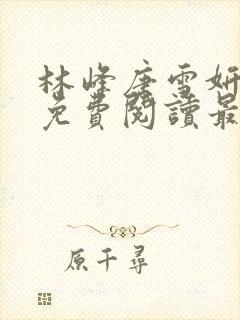 林峰唐雪妍
免費閱讀最
原千尋